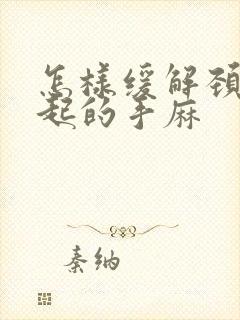 怎样缓解颈
起的手麻
秦纳